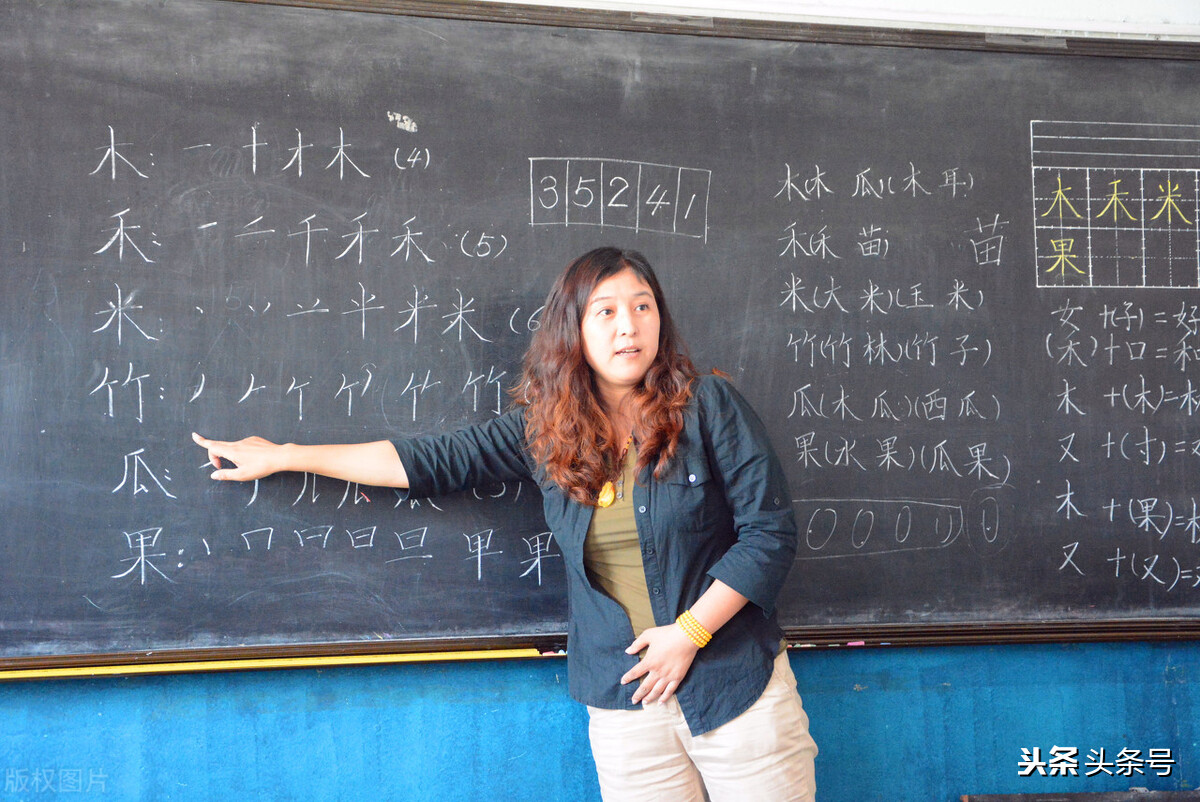 木: 一 十 才 木 (4)
禾: 一 二 千 禾 禾 (5)
米: 丶 丷 丷一 半 米 米 (6
竹: 丿 𠂉 竹
瓜:
果: 丨 冂 日 日 旦 甲 果
3 5 2 4 1
木(木 瓜)(木 耳)
禾(禾 苗) 苗
米(大 米)(玉 米)
竹(竹 林)(竹 子)
瓜(木 瓜)(西 瓜)
果(水 果)(瓜 果)
木 禾 米
果
女 +(子) = 好
(禾)+口 =和
木 +(木)=
又 +(寸)=
木 +(果)=
又 +(又)=
版权图片
头条 头条号